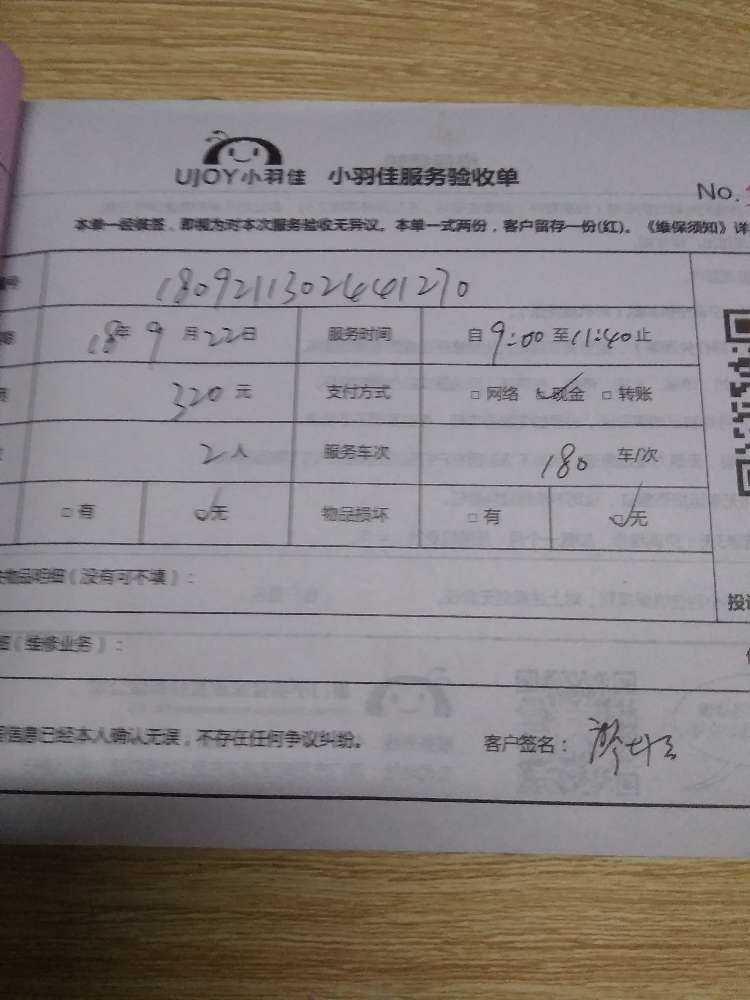 UJOY小羽佳 小羽佳服务验收单
No.
本单一经签签，即视为对本次服务验收无异议。本单一式两份，客户留存一份(红)。《维保须知》详
号 1809211302441270
期 18年9月22日 服务时间 自9:00至11:40止
320元 支付方式 □网络 ☑现金 □转账
2人 服务车次 180 车/次
□有 ☑无 物品损坏 □有 ☑无
物品明细（没有可不填）：
投
（维修业务）：
信息已经本人确认无误，不存在任何争议纠纷。 客户签名：